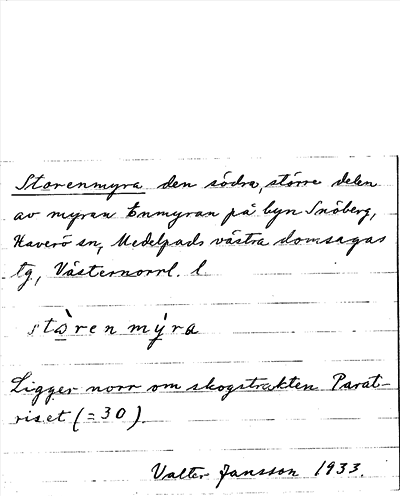 Storenmyra den södra, större delen
av myran Enmyran på byn Snöberg,
Haverö sn, Medelpads västra domsagas
tg, Västernorrl. l
stò̲renmy̍ra
Ligger norr om skogstrakten Parat-
riset (=30).
Valter Jansson 1933.